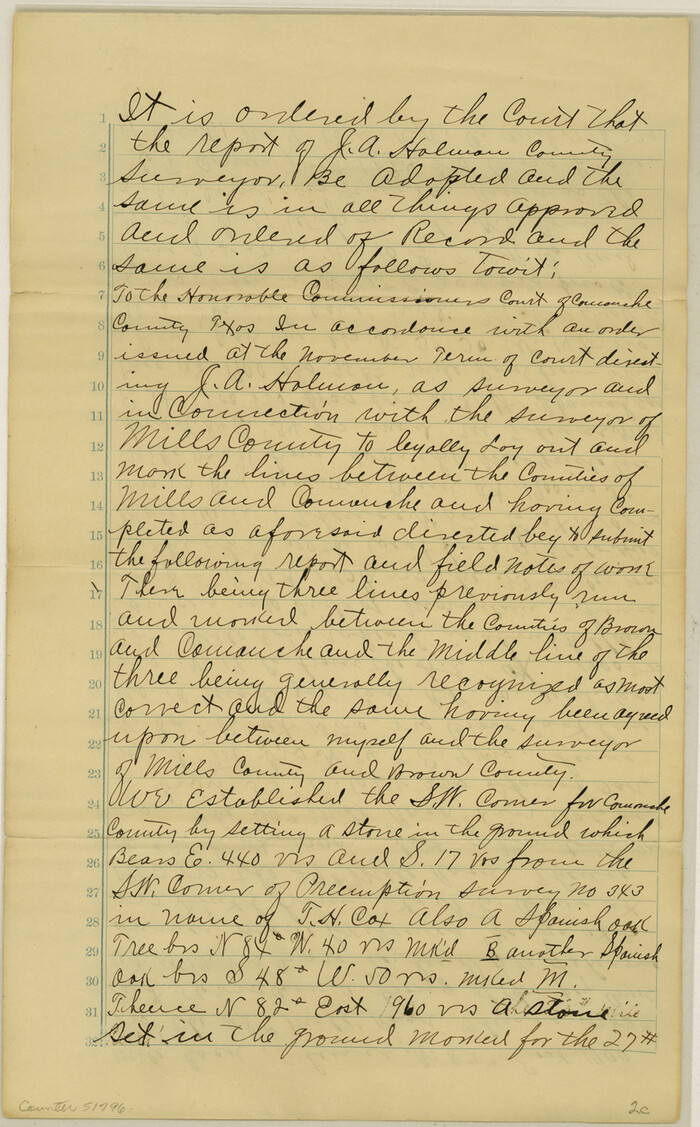 1 It is ordered by the Court that
2 the report of J.A. Holman County
3 Surveyor, Be Adopted and the
4 same is in all things approved
5 and ordered of Record and the
6 same is as follows Towit;
7 To the Honorable Commissioners Court of Comanche
8 County Texos In accordance with an order
9 issued at the November Term of court direct-
10 ing J.A. Holman, as surveyor and
11 in Connection with the surveyor of
12 Mills County to legally Loy out and
13 mark the lines between the Counties of
14 Mills and Comanche and having Com-
15 pleted as aforesaid directed beg to submit
16 the following report and field notes of work
17 There being three lines previously run
18 and marked between the Counties of Brown
19 and Comanche and the Middle line of the
20 three being generally recognized as most
21 correct and the same having been agreed
22 upon between myself and the surveyor
23 of Mills County and Brown County.
24 We Established the S.W. Corner for Comanche
25 County by setting a stone in the ground which
26 Bears E. 440 vrs and S. 17 vrs from the
27 S.W. Corner of Preemption survey no 343
28 in name of T.H. Cox Also A Spanish oak
29 Tree brs N 84° W. 40 vrs Mk'd B another Spanish
30 oak brs S 48° W. 50 vrs. mked M.
31 Thence N 82° East 1960 vrs A stone
32 Set in the ground marked for the 27th
Counter 51796-
2c